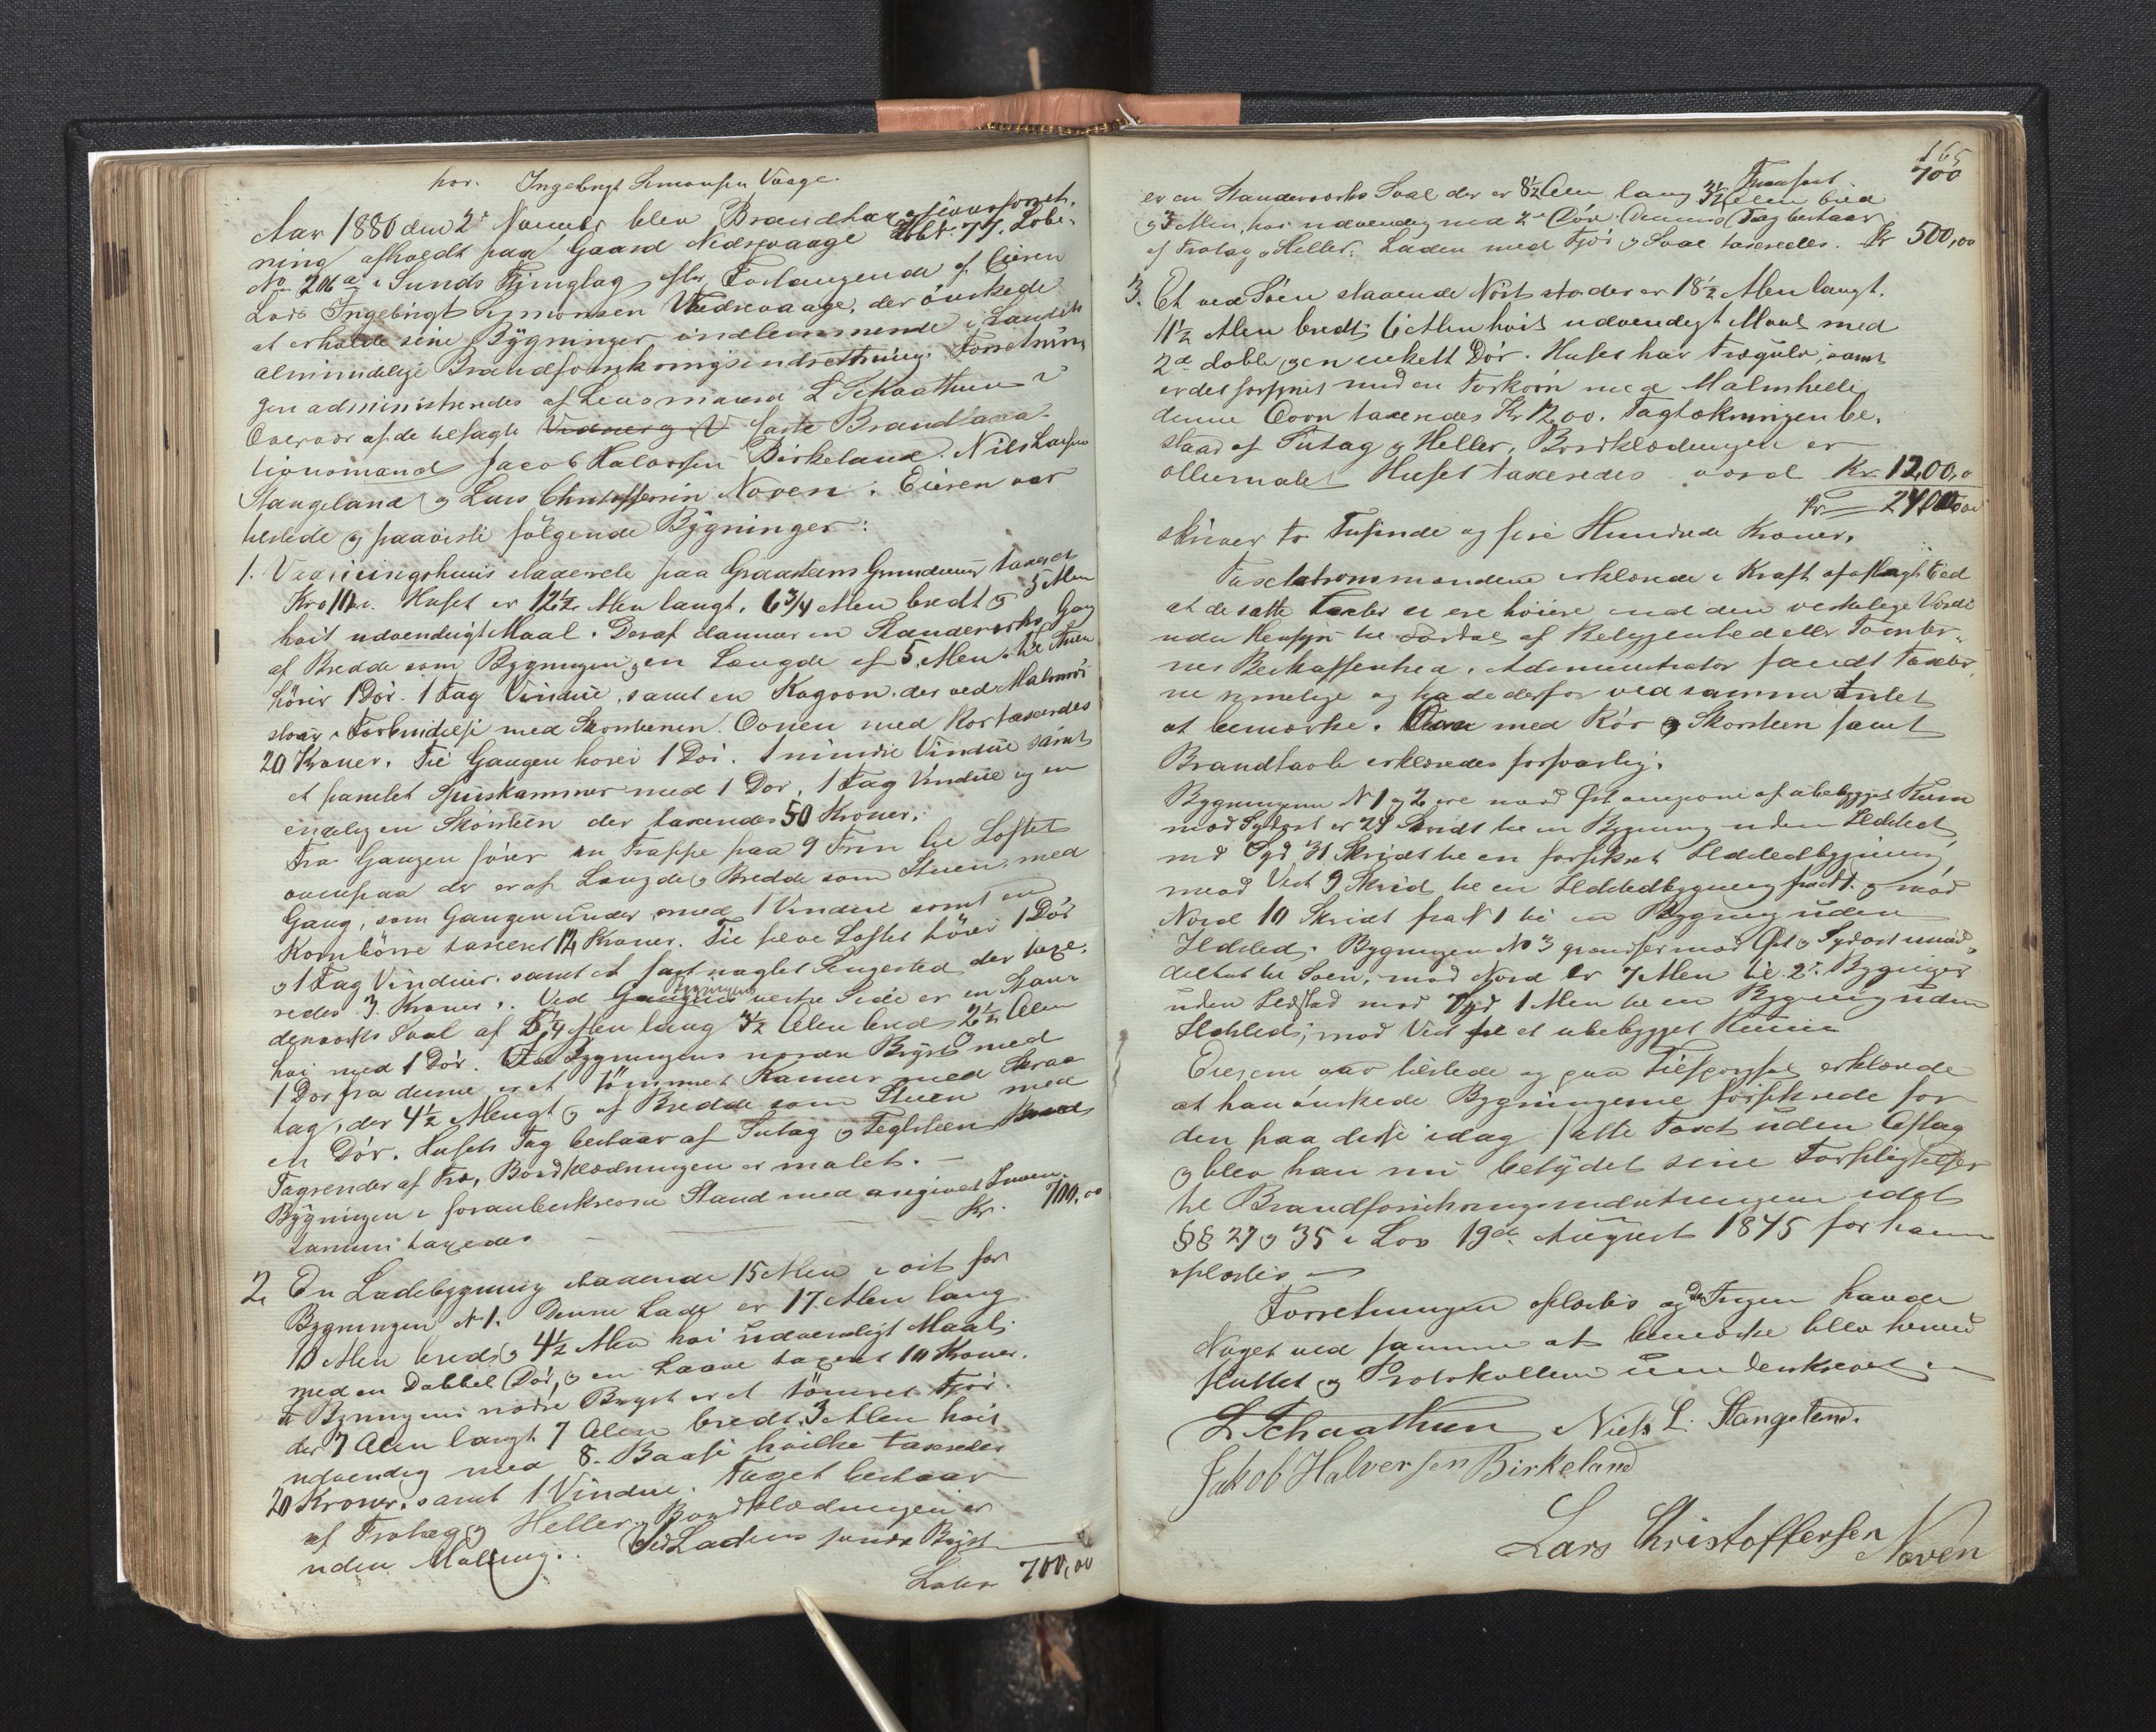 hos. Ingebrigt Simonsen Vaage.
Aar 1880 den 2d Novemb blev Brandtaxationsforret-
ning afholdt paa Gaard Nedrevaage Lobt: 77. Løbe-
No 206a i Sunds Thinglag efter Forlangende af Eieren
Ingebrigt Simonsen Nedrevaage, der ønskede
at erholde sine Bygninger indlemmende i Landets
almindelige Brandforsikringsindretning. Forretnin
gen administreredes af Lensmand L Schaathun i
Overvær af de tilsagte faste Brandtaxa-
tionsmænd Jacob Halvorsen Birkeland. Nils Larsen
Stangeland og Lars Christoffersen Noven. Eieren var
tilstede og paaviste følgende Bygninger:
1. Vaaningshuus staaende paa Graasteens Grundmuur taxeret
Kro 10. Huset er 12½ Alen langt, 6¾ Alen bredt og 5 Alen
høit udvendigt Maal. Deraf danner en Standerverks Gang
af Bredde som Bygningen en Længde af 5 Alen. Til Stuen
hører 1 Dør. 1 Fag Vindue, samt en Kogovn der ved Malmrør
staar i Forbindelse med Skorstenen. Ovnen med Rør taxeredes
20 Kroner. Til Gangen hører 1 Dør. 1 mindre Vindue samt
et panelet Spiiskammer med 1 Dør, 1 Fag Vindue og en
endelig en Skorsteen der taxeredes 50 Kroner.
Fra Gangen fører en Trappe paa 9 Trin til Loftet
ovenpaa der er af Længde og Bredde som Stuen med
Gang, som Gangen under med 1 Vindue samt en
Kornbørre taxeret 14 Kroner. Til selve Loftet hører 1 Dør
og 1 Fag Vinduer. samt et fast naglet Sengested der taxe-
redes 3 Kroner. Ved Bygningens vestre Side er en Stan-
derverks Sval af 5¼ Alen lang 3½ Alen bred 2½ Alen
høi med 1 Dør. Ved Bygningens nordre Bryst med
1 Dør fra denne er et tømmret Kammer med Skraa
tag, der 4½ Alen langt og af Bredde som Stuen med
en Dør. Husets Tag bestaar af Sutag og Teglsteen
Tagrender af Træ, Bordklædningen er malet. —
Bygningen i foranbeskrevne Stand med angivet Inven-
tarium taxeredes — — — Kr. 700,00
2. En Ladebygning staaende 15 Alen i øst for
Bygningen N 1. Denne Lade er 17 Alen lang
10 Alen bred og 4½ Alen høi udvendigt Maal;
med en Dobbel Dør, og en Laave taxeret 10 Kroner.
Bygningens nordre Bryst er et tømret Fjøs
der 7 Alen langt 7 Alen bredt. 3 Alen høit
udvendig med 8 Baase hvilke taxeredes
20 Kroner. samt 1 Vindue. Taget bestaar
af Trotag og Heller. Bordklædningen er
uden Maling. Ved Ladens søndre Bryst
Lateris 700,00
165
Transport 700
er en Standerverks Sval der er 8½ Alen lang 3½ Alen bred
og 3 Alen høi udvendig med 2de Døre. Dennes Tag bestaar
af Trotag og Heller. Laden med Fjøs og Sval taxeredes. Kr 500,00
3. Et ved Søen staaende Nøst der er 18½ Alen langt.
11½ Alen bredt; 6 Alen høit udvendigt Maal med
2de doble og en enkelt Dør. Huset har Trægulv, samt
er det forsynet med en Torkovn med Malmhelle
denne Ovn taxeredes Kr 12,00. Tagtækningen be-
staar af Sutag og Heller, Bordklædningen er
oliemalet Huset taxeredes værd Kr. 1200,0
Kr 2400,00
skriver to Tusinde og fire Hundrede Kroner.
Taxationsmændene erklærede i Kraft af aflagt Eed
at de satte Taxter ei ere høiere end den virkelige Værdi
uden Hensyn til Fordel af Beliggenhed eller Tomter-
nes Beskaffenhed. Administrator fandt Taxter
ne rimelige og havde derfor ved samme Intet
at bemærke. Ovne med Rør og Skorsteen samt
Brandtavle erklæredes forsvarlig.
Bygningerne N 1 og 2 ere mod Øst omgivne af ubebygget Rum
mod Sydost er 24 Skridt til en Bygning uden Ildsted
mod Syd 31 Skridt til en forsikret Ildstedbygning,
mod Vest 9 Skridt til en Ildstedbygning og mod
Nord 10 Skridt fra N 1 til en Bygning uden
Ildsted. Bygningen No 3 grændser mod Øst og Sydost umid-
delbart til Søen, mod Nord er 7 Alen til 2de Bygninger
uden Ildsted mod Syd 1 Alen til en Bygning uden
Ildsted; mod Vest et ubebygget Rum
Eieren var tilstede og paa Tilspørgsel erklærede
at han ønskede Bygningerne forsikrede for
den paa disse idag satte Taxt uden Afslag
og blev han nu betydet sine Forpligtelser
til Brandforsikringsindretningen idet
§§ 27 og 35 i Lov 19de August 1845 for ham
oplæstes —
Forretningen oplæstes og da Ingen havde
Noget ved samme at bemærke blev hermed
sluttet og Protokollen underskrevet —
L Schaathun Niels L. Stangeland.
Jakob Halversen Birkeland
Lars Christoffersen Noven